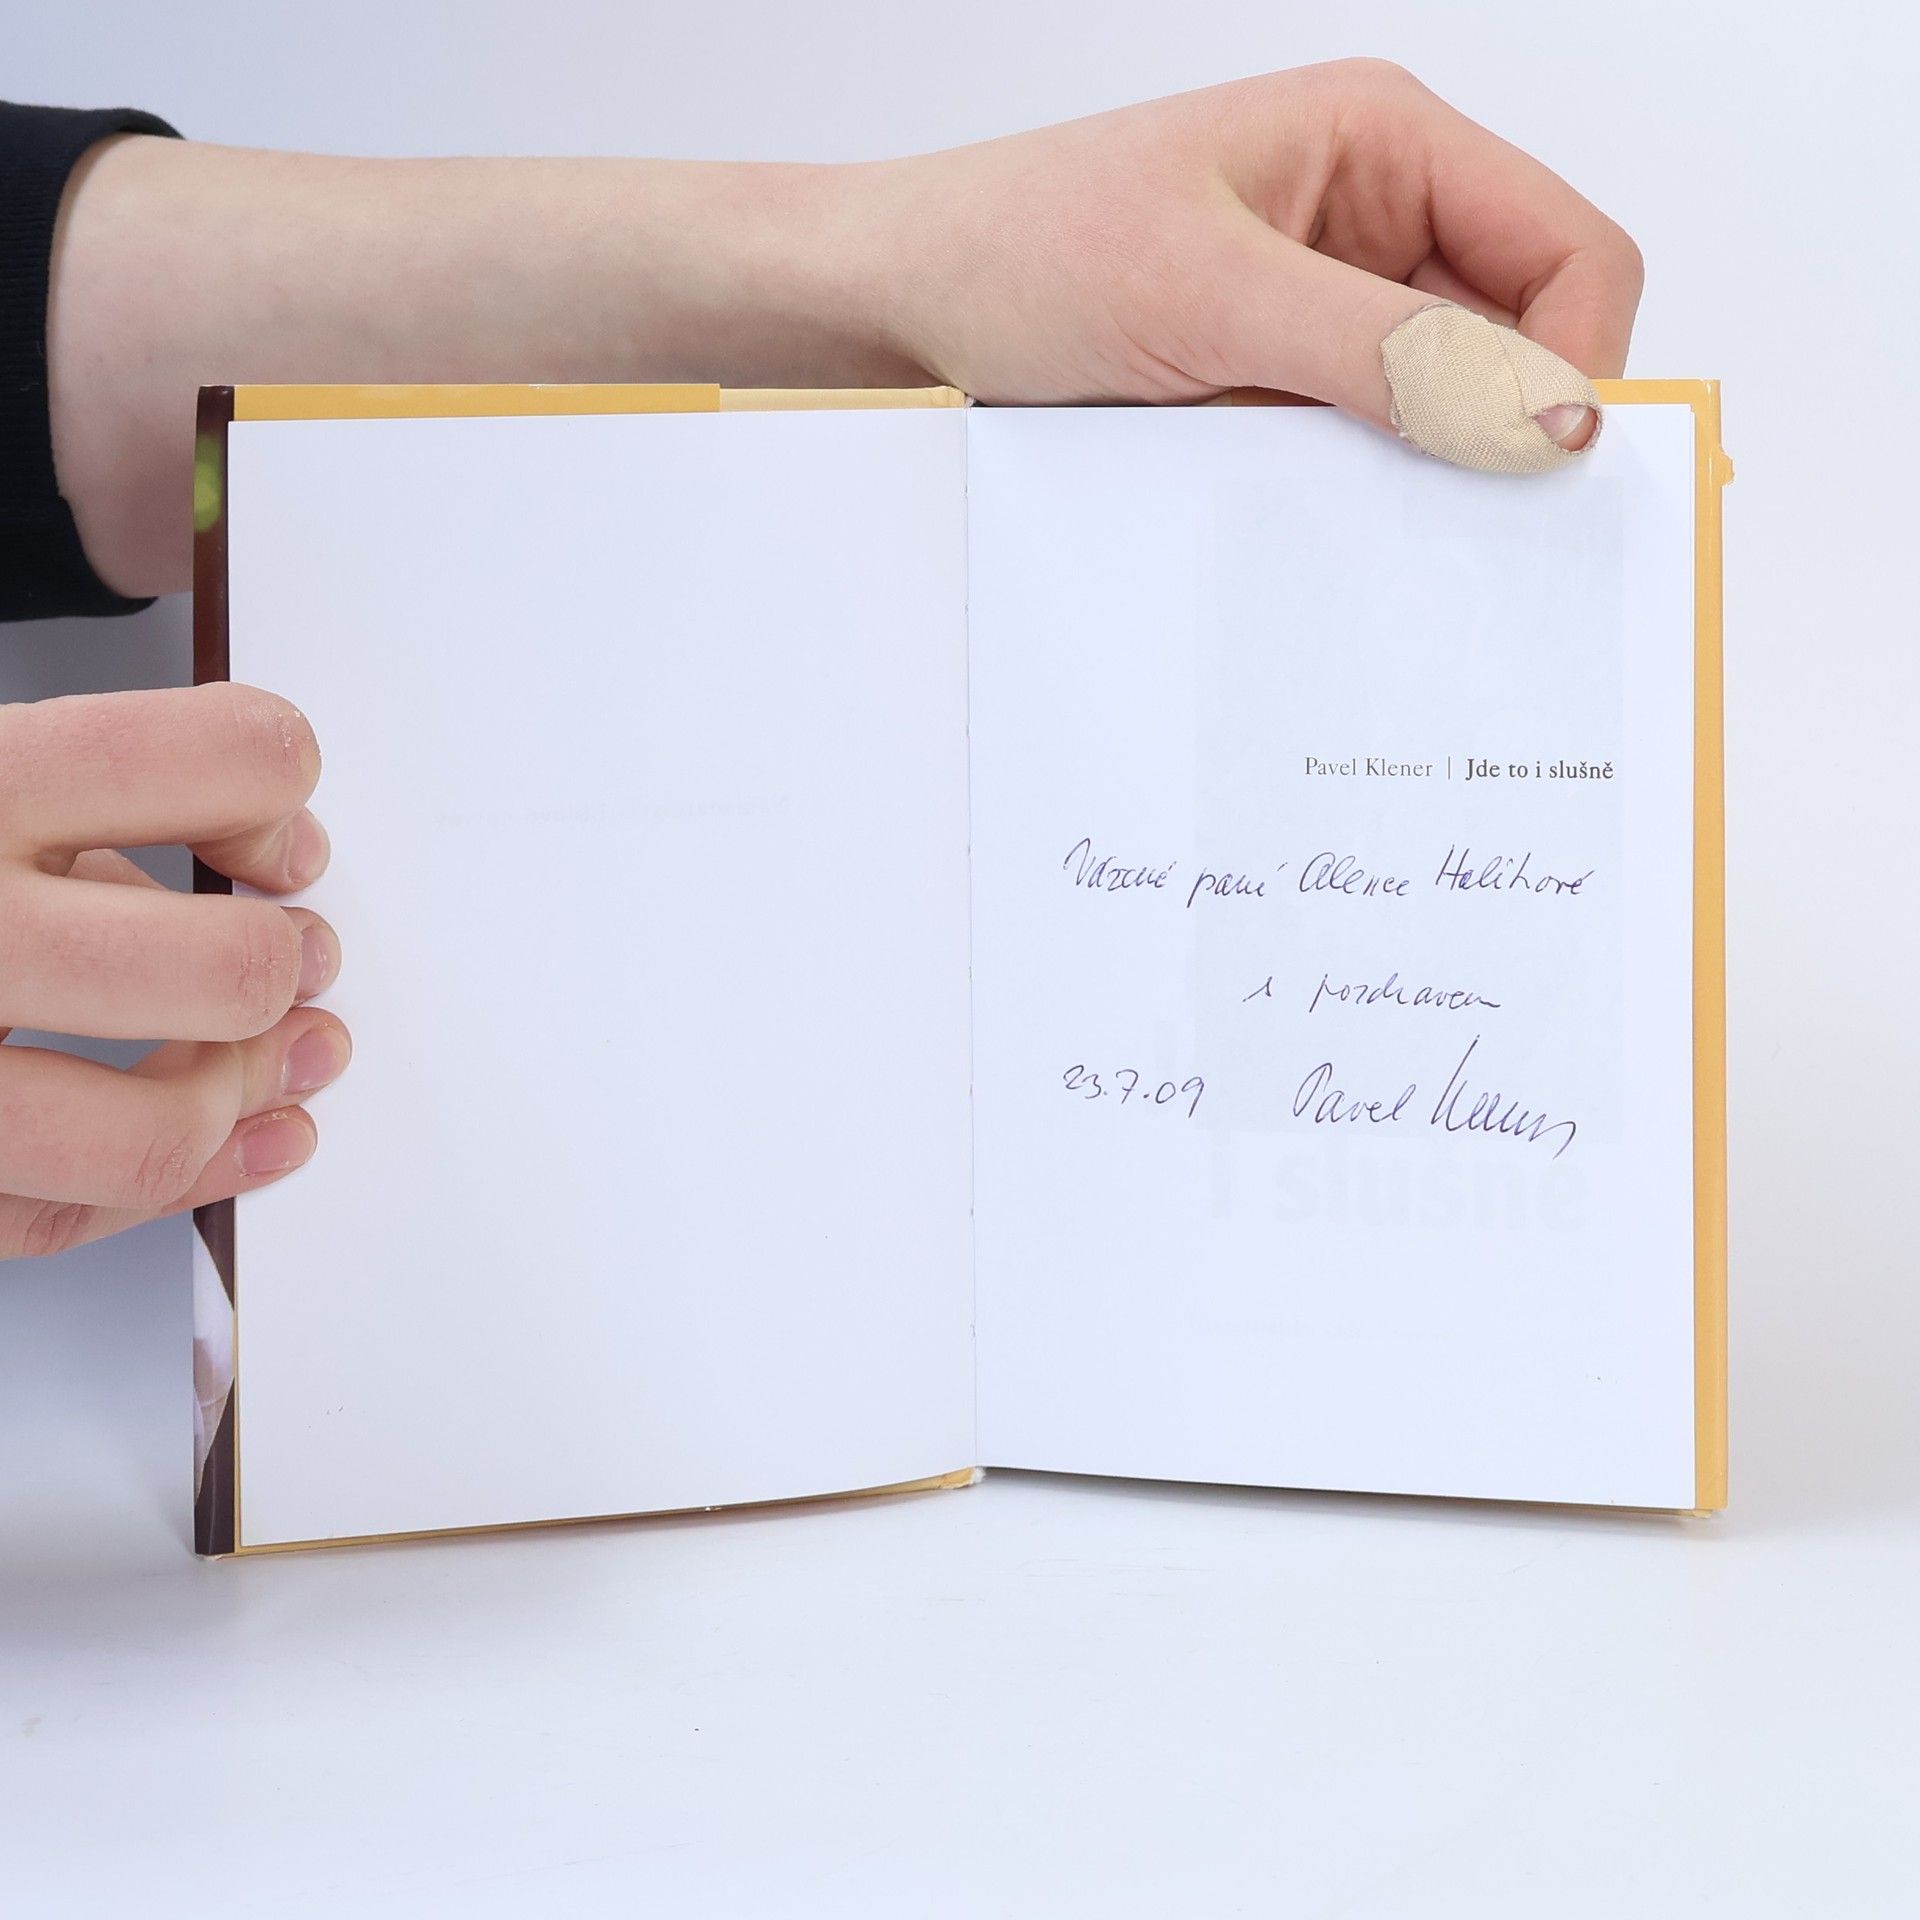 Pavel Klener | Jde to i slušně
Vážené paní Alence Holíkové
s pozdravem
23.7.09 Pavel Klener
i slušně